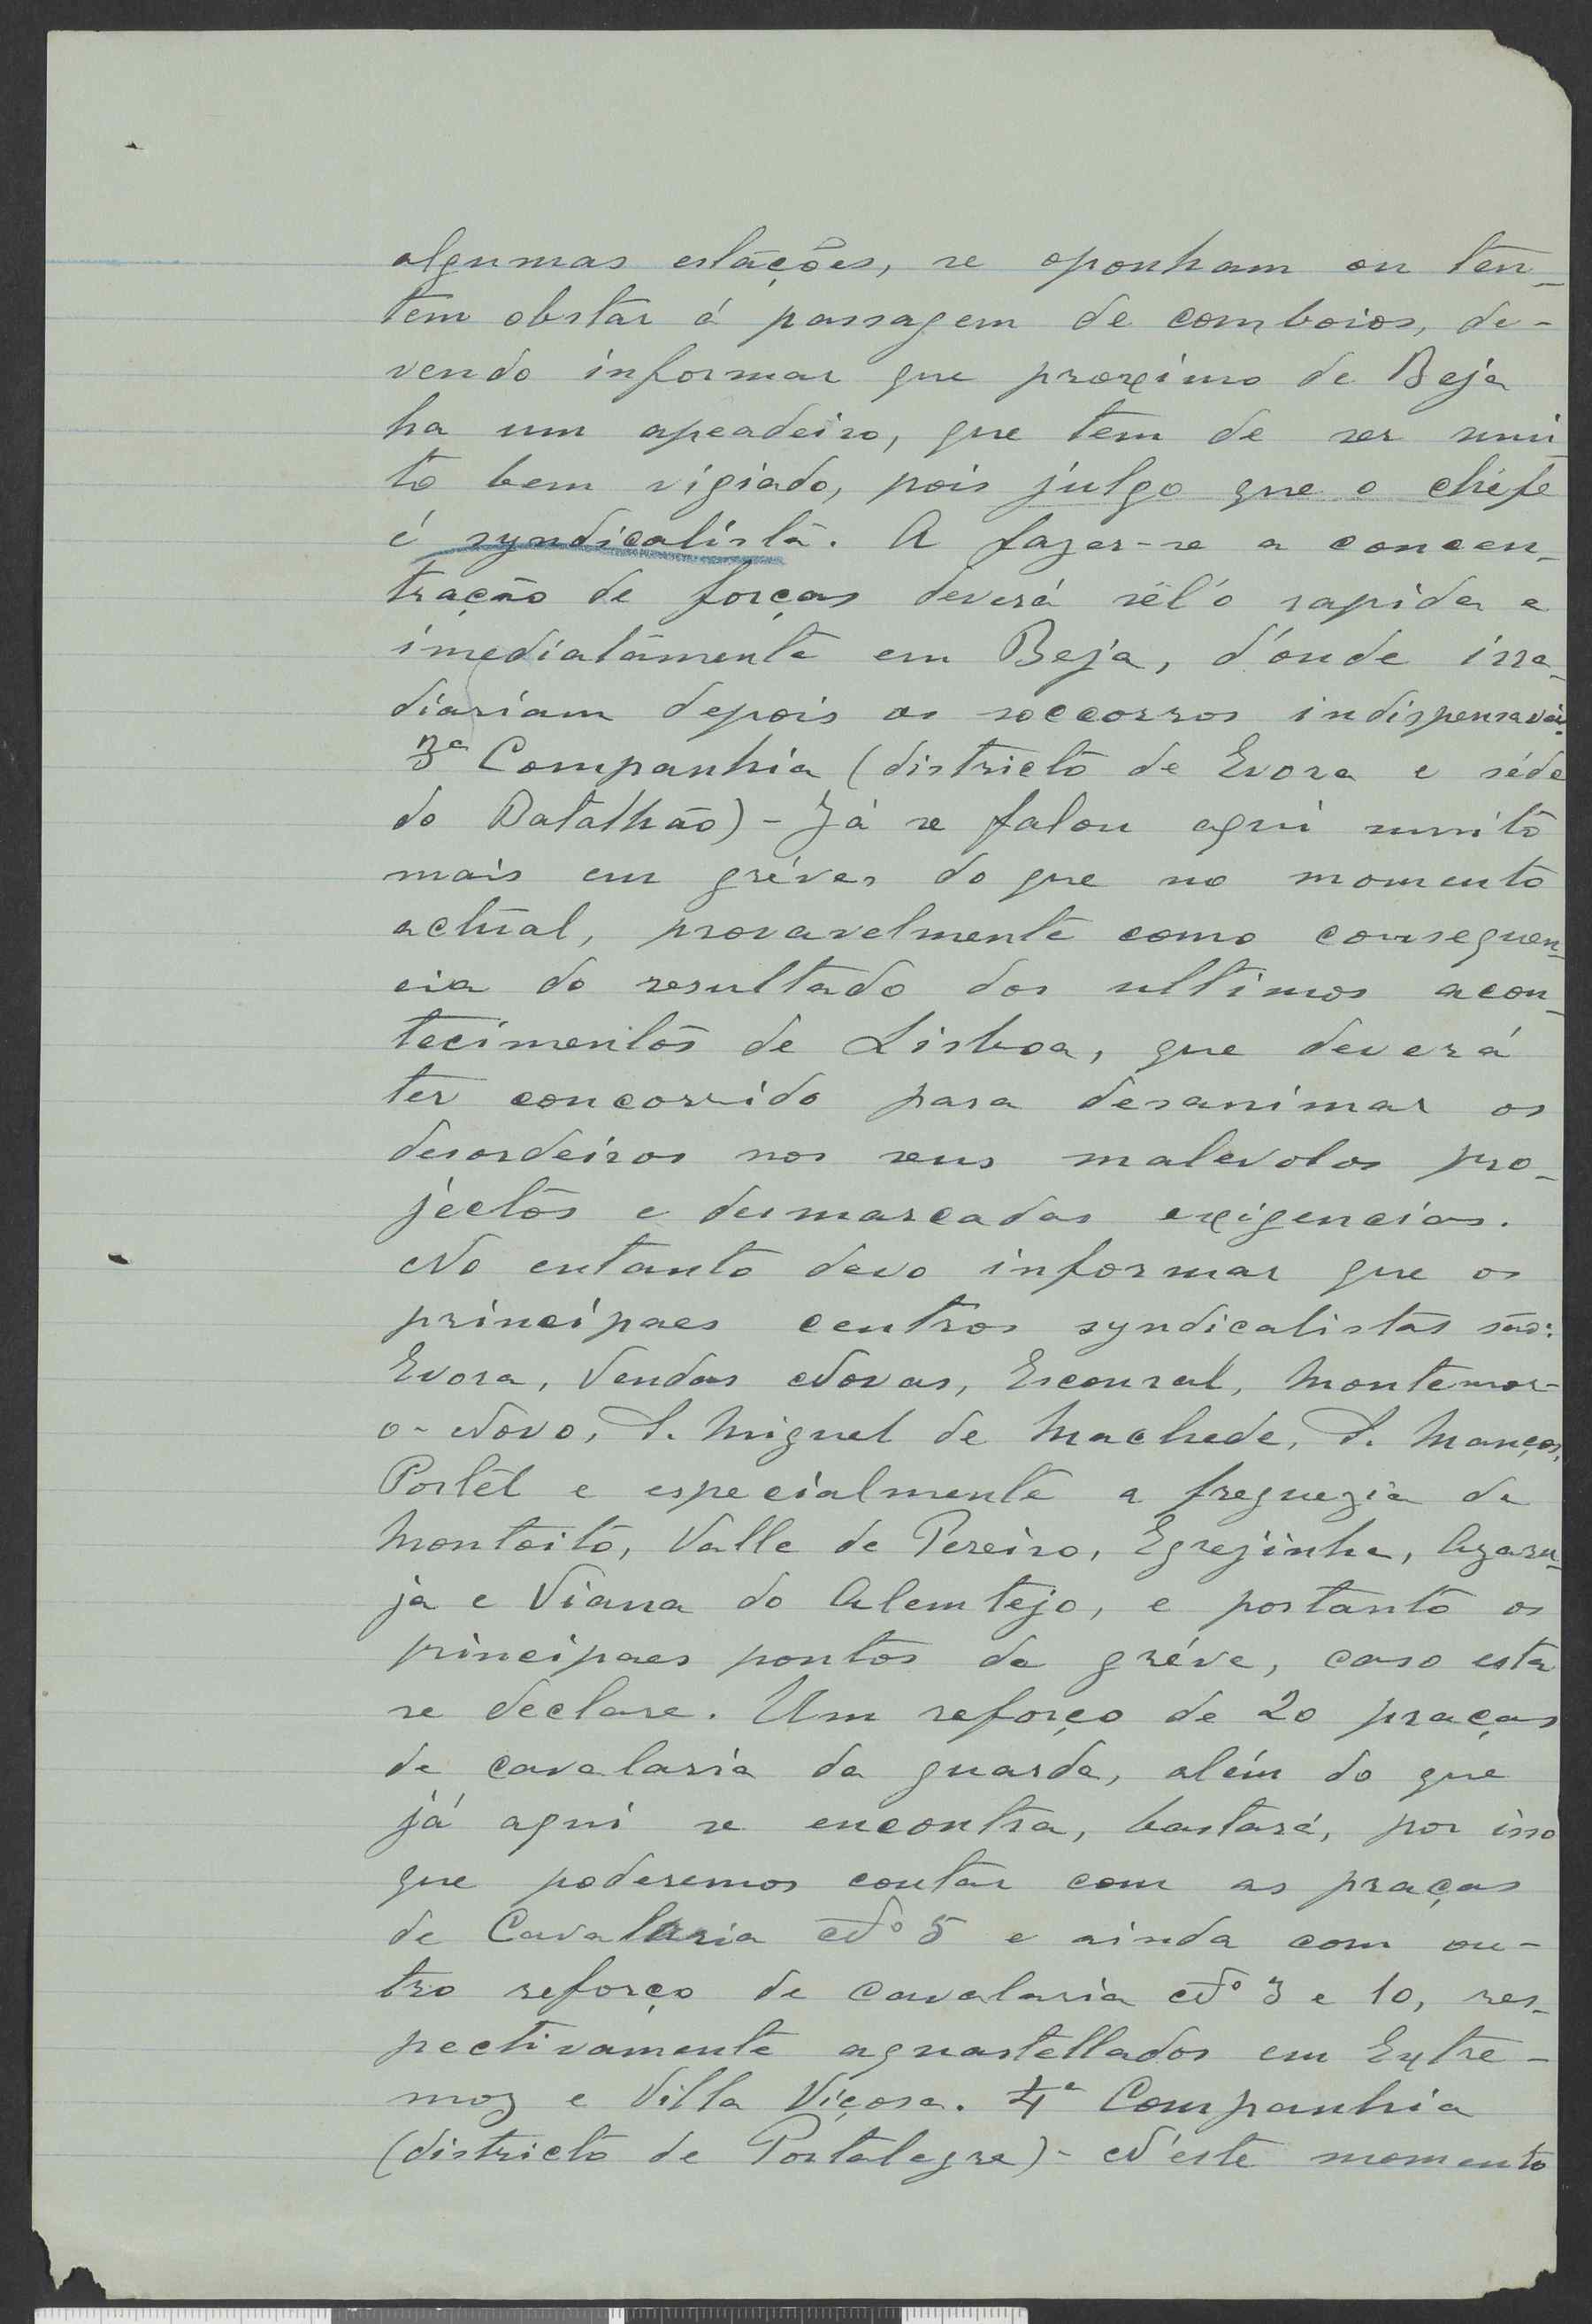 algumas estações, se oponham ou ten-
tem obstar á passagem de comboios, de-
vendo informar que proximo de Beja
ha um apeadeiro, que tem de ser mui-
to bem vigiado, pois julgo que o chefe
é syndicalista. A fazer-se a concen-
tração de forças deverá sêl'o rapida e
imediatamente em Beja, d'onde irra-
diariam depois os soccorros indispensaveis.
3ª Companhia (districto de Evora e séde
do Batalhão) - Já se falou aqui muito
mais em gréves do que no momento
actual, provavelmente como consequen-
cia do resultado dos ultimos acon-
tecimentos de Lisboa, que deverá
ter concorrido para desanimar os
desordeiros nos seus malevolos pro-
jectos e desmarcadas exigencias.
No entanto devo informar que os
principaes centros syndicalistas são:
Evora, Vendas Novas, Escoural, Montemor-
o-Novo, S. Miguel de Machede, S. Manços,
Portel e especialmente a freguezia de
Montoito, Valle de Pereiro, Egrejinha, Azaru-
ja e Viana do Alemtejo, e portanto os
principaes pontos de gréve, caso esta
se declare. Um reforço de 20 praças
de cavalaria da guarda, além do que
já aqui se encontra, bastará, por isso
que poderemos contar com as praças
de Cavalaria Nº 5 e ainda com ou-
tro reforço de cavalaria Nº 3 e 10, res-
pectivamente aquartellados em Extre-
moz e Villa Viçosa. 4ª Companhia
(districto de Portalegre) - N'este momento